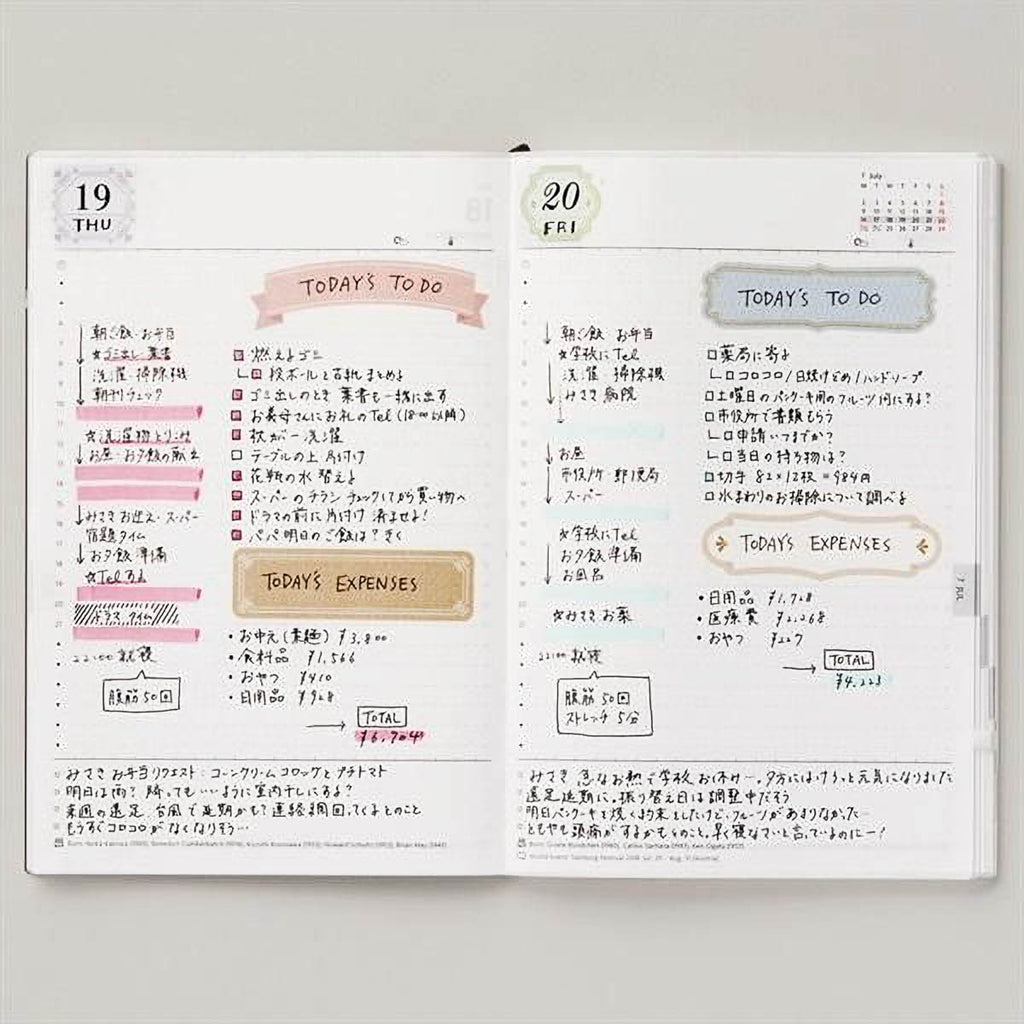 19
THU
TODAY'S TO DO
朝ご飯・お弁当
☆ゴミ出し・葉書
洗濯・掃除機
朝刊チェック
☆洗濯物とりこみ
お昼・お夕飯の献立
みさきお迎え・スーパー
宿題タイム
お夕飯準備
☆Telする
ドラマタイム
22:00 就寝
腹筋50回
燃えるゴミ
段ボールと古紙まとめる
ゴミ出しのとき 葉書も一緒に出す
お義母さんにお礼のTel (18:00以降)
枕カバー洗濯
テーブルの上 片付け
花瓶の水替える
スーパーのチラシ チェックしてから買い物へ
ドラマの前に片付け 済ませる!
パパ明日のご飯は?きく
TODAY'S EXPENSES
・お中元(素麺) ¥3,800
・食料品 ¥1,566
・おやつ ¥410
・日用品 ¥928
TOTAL
¥6,704
みさき お弁当リクエスト:コーンクリームコロッケとプチトマト
明日は雨? 降ってもいいように室内干しにする?
来週の遠足、台風で延期かも?連絡網回ってくるとのこと
もうすぐコロコロがなくなりそう…
20
FRI
July
M T W T F S S
1
2 3 4 5 6 7 8
9 10 11 12 13 14 15
16 17 18 19 20 21 22
23 24 25 26 27 28 29
TODAY'S TO DO
朝ご飯 お弁当
☆学校にTel
洗濯・掃除機
みさき病院
お昼
市役所・郵便局
スーパー
☆学校にTel
お夕飯準備
お風呂
☆みさきお薬
22:00 就寝
腹筋50回
ストレッチ 5分
□薬局に寄る
└□コロコロ/日焼けどめ/ハンドソープ
□土曜日のパンケーキ用のフルーツ何にする?
□市役所で書類もらう
└□申請いつまでか?
└□当日の持ち物は?
□切手 82×12枚=984円
□水まわりのお掃除について調べる
TODAY'S EXPENSES
・日用品 ¥1,728
・医療費 ¥2,268
・おやつ ¥227
TOTAL
¥4,223
7 JUL
みさき 急なお熱で学校お休みー。夕方にはけろっと元気になりました
遠足延期に。振り替え日は調整中だそう
明日パンケーキを焼く約束をしたけど、フルーツがあまりなかった…
ともやも頭痛がするかもとのこと。早く寝なさいと言っているのにー!